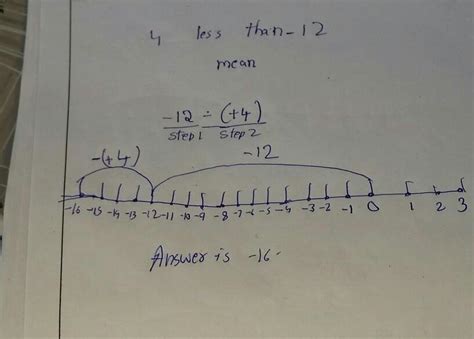 4 less than -12
mean
-12 - (+4)
step 1 step 2
-(+4) -12
-16 -15 -14 -13 -12 -11 -10 -9 -8 -7 -6 -5 -4 -3 -2 -1 0 1 2 3
Answer is -16.